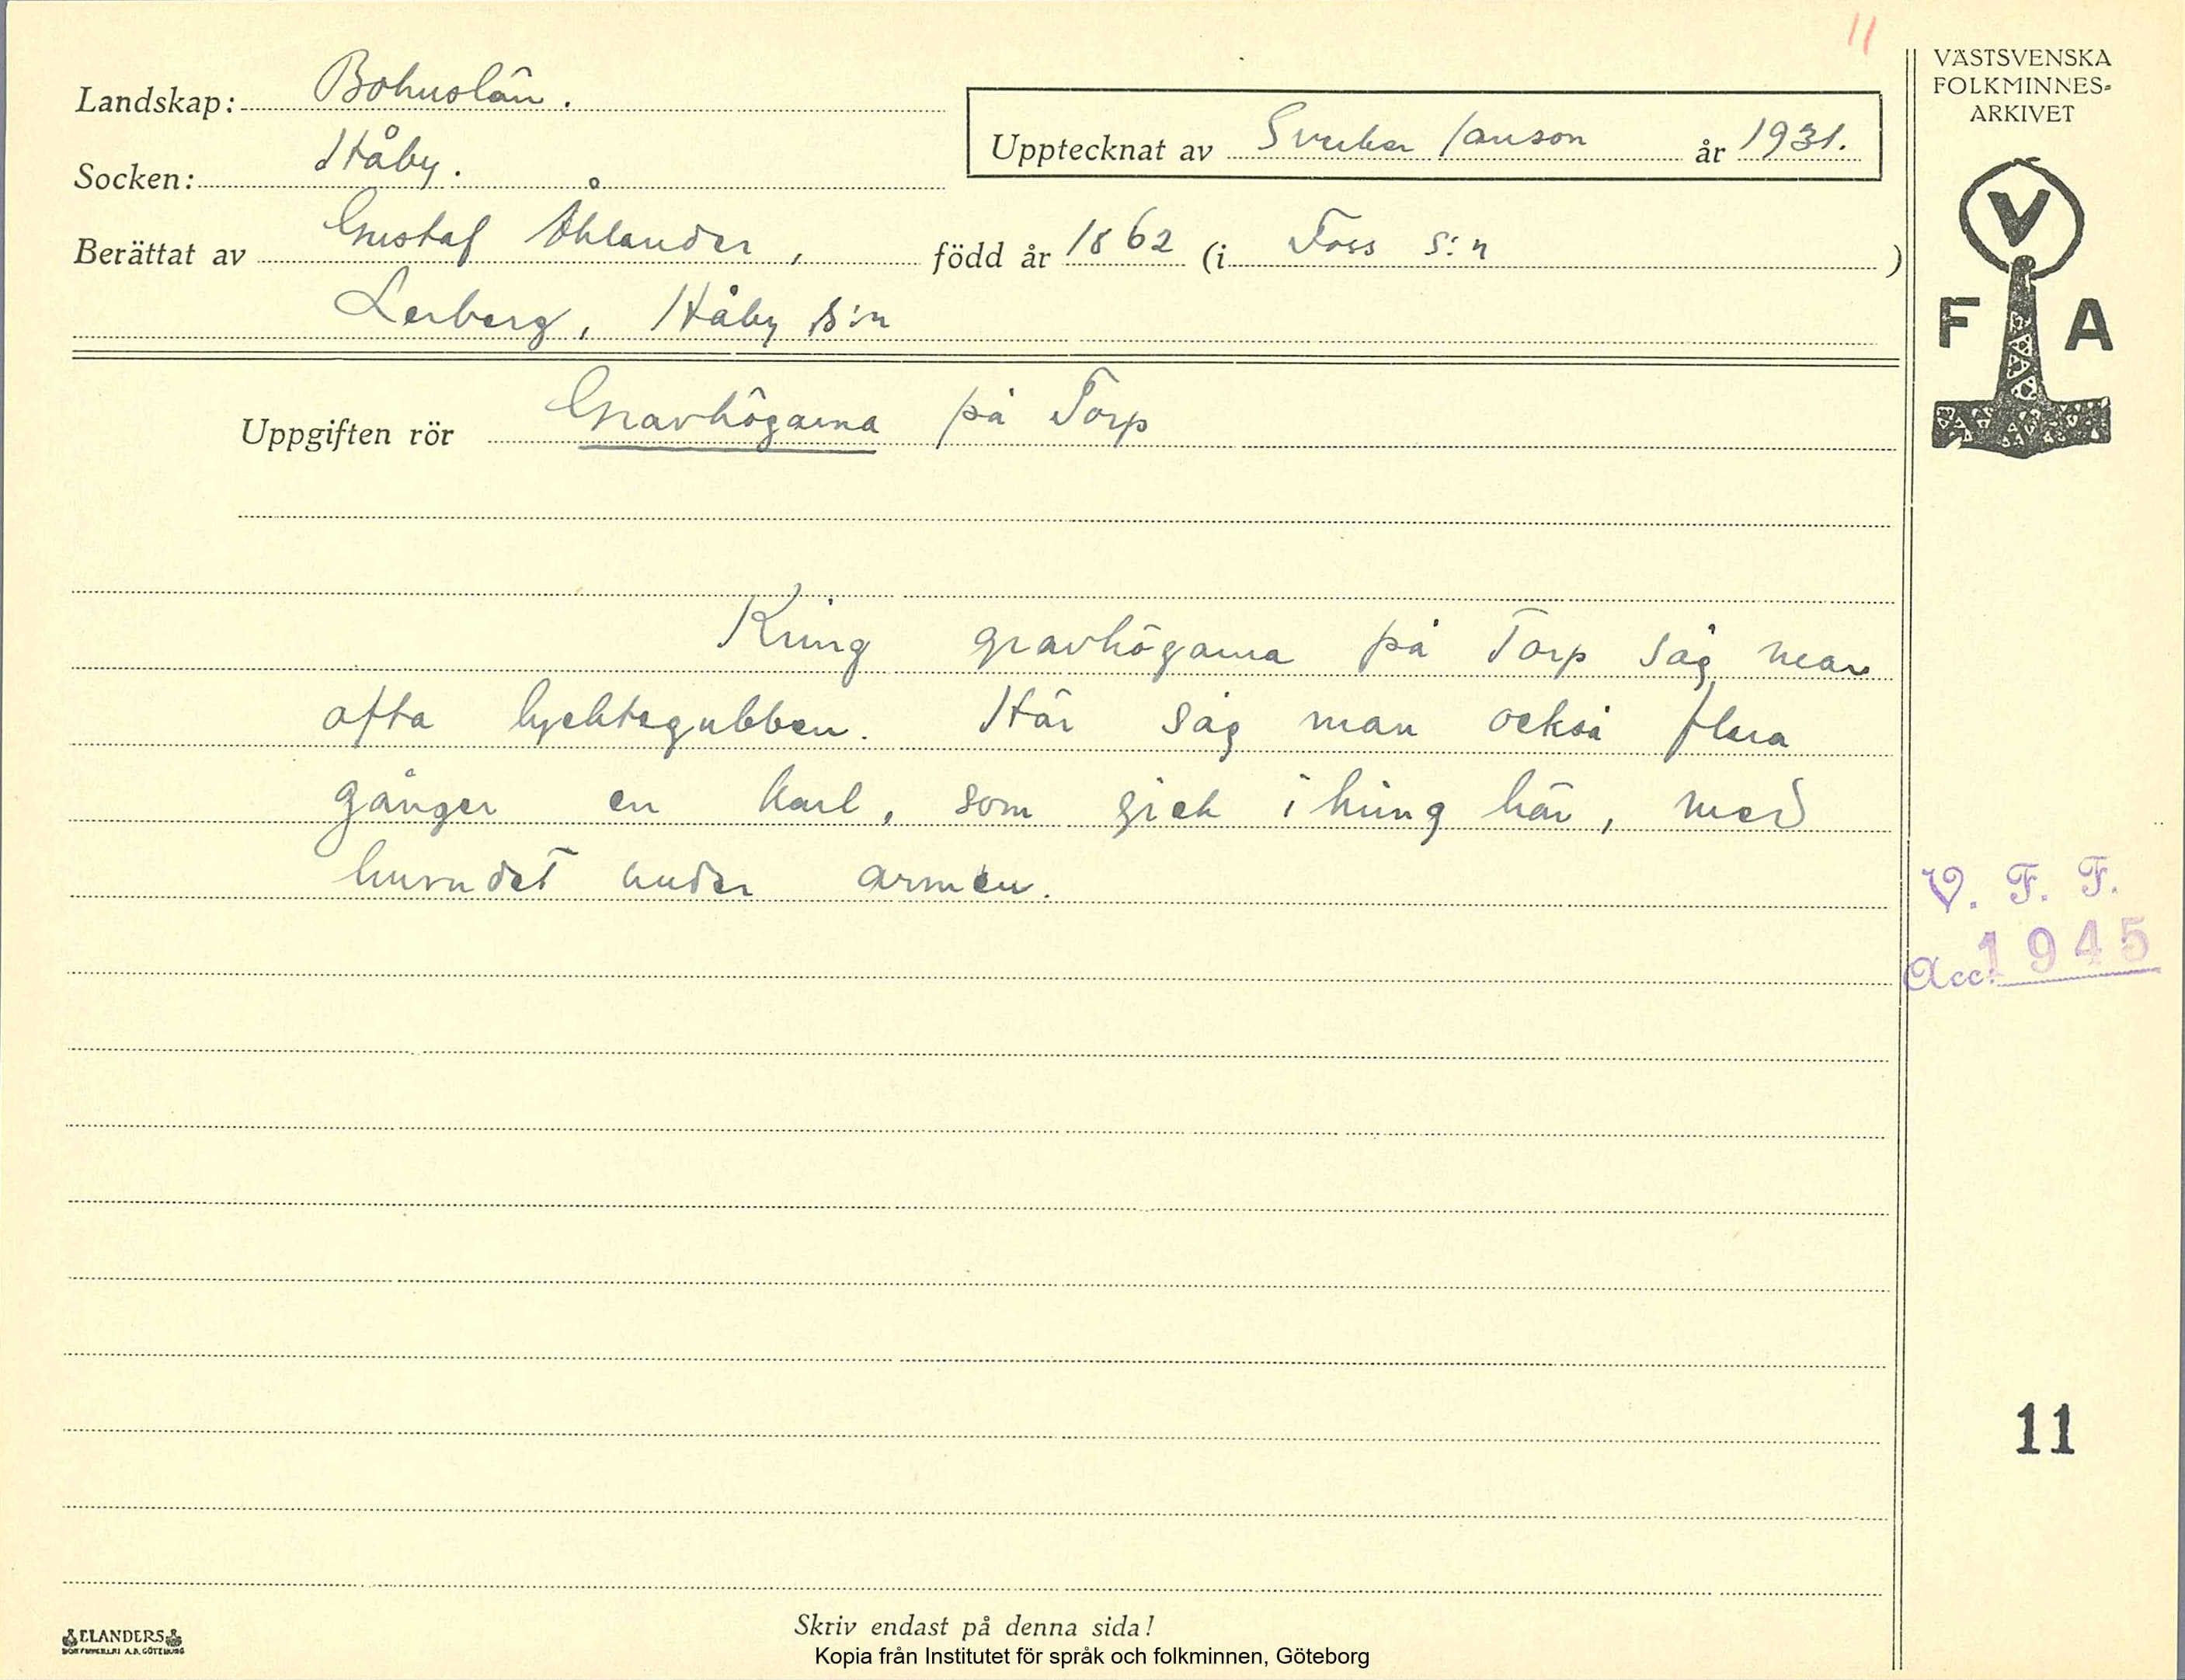 11
VÄSTSVENSKA
FOLKMINNES-
ARKIVET
Landskap: Bohuslän.
Upptecknat av Sverker Janson år 1931.
Socken: Håby.
Berättat av Gustaf Åhlander, född år 1862 (i Foss s:n )
Lerberg, Håby s:n
V
F A
Uppgiften rör Gravhögarna på Torp
Kring gravhögarna på Torp såg man
ofta lyktegubben. Här såg man också flera
gånger en karl, som gick i kring här, med
huvudet under armen.
V. F. F.
Acc. 1945
11
Skriv endast på denna sida!
ELANDERS
BOKTRYCKERI A.B. GÖTEBORG
Kopia från Institutet för språk och folkminnen, Göteborg